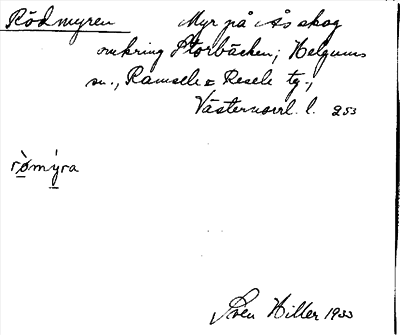 Rödmyren Myr på Ås skog
omkring Storbäcken; Helgums
sn., Ramsele o Resele tg.,
Västernorrl. l. 253
ròmýra
Sven Hiller 1933